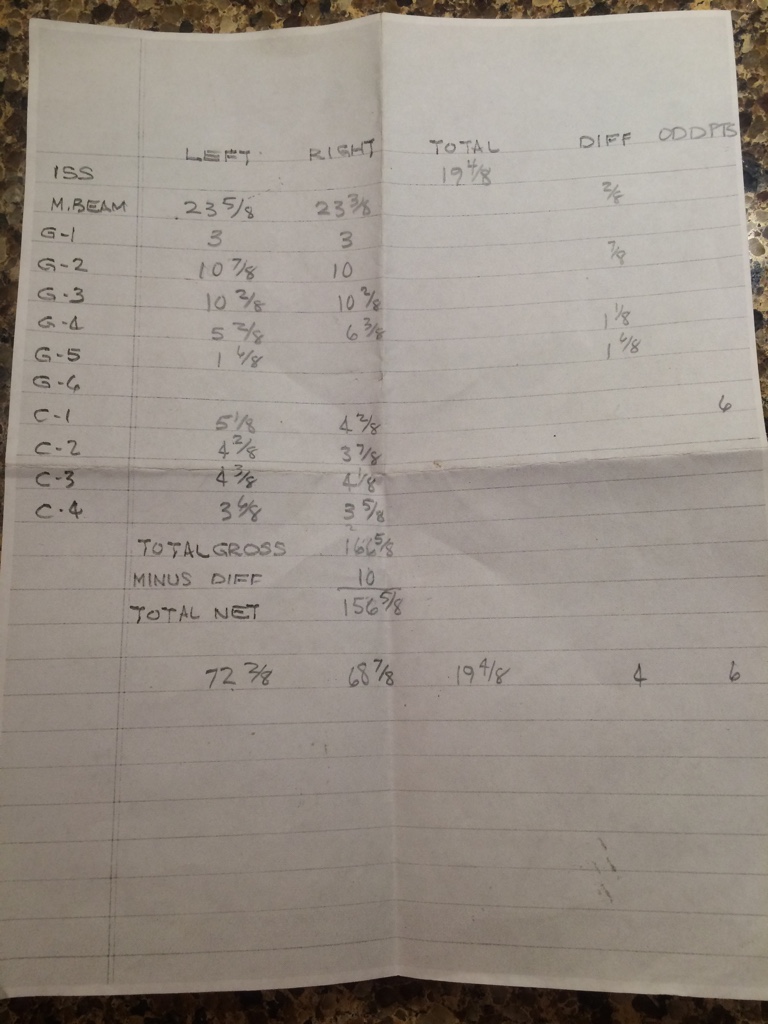 LEFT RIGHT TOTAL DIFF ODDPTS
ISS 19 4/8
M.BEAM 23 5/8 23 3/8 2/8
G-1 3 3
G-2 10 7/8 10 7/8
G-3 10 2/8 10 2/8
G-4 5 2/8 6 3/8 1 1/8
G-5 1 6/8 1 6/8
G-6
6
C-1 5 1/8 4 2/8
C-2 4 2/8 3 7/8
C-3 4 3/8 4 1/8
C-4 3 6/8 3 5/8
TOTAL GROSS 166 5/8
MINUS DIFF 10
TOTAL NET 156 5/8
72 2/8 68 7/8 19 4/8 4 6